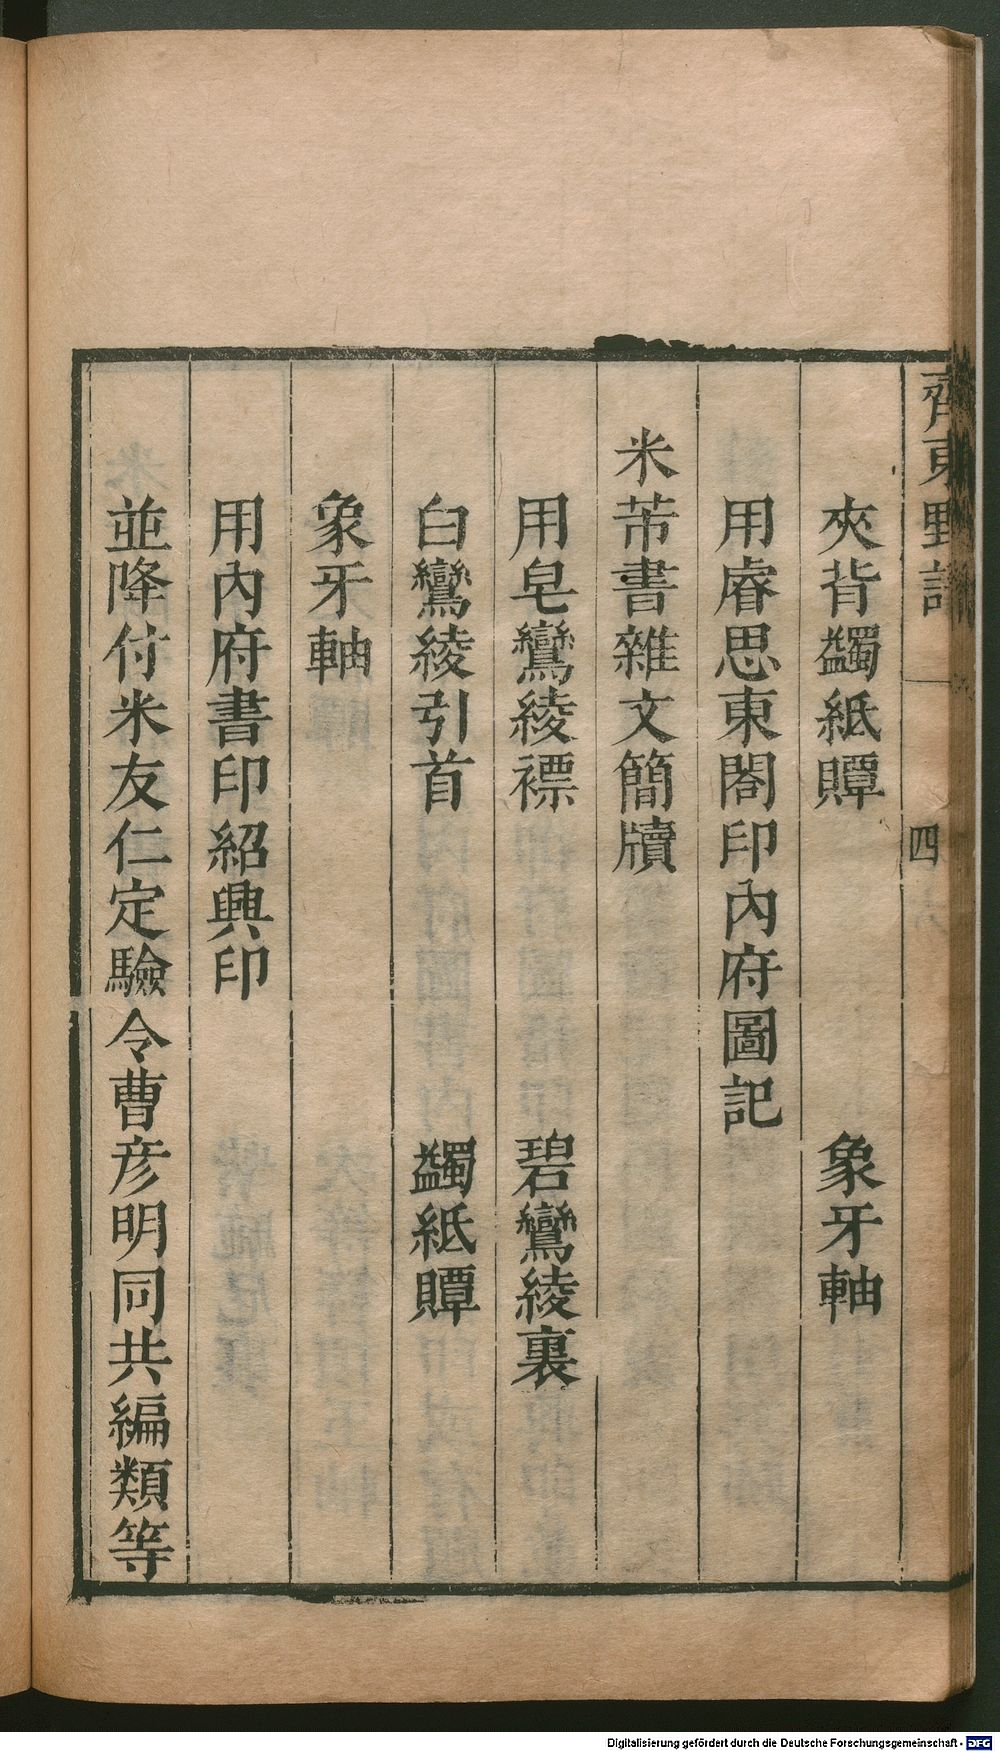 齊東野語
四
夾背蠲紙贉 象牙軸
用睿思東閣印內府圖記
米芾書雜文簡牘
用皂鸞綾褾 碧鸞綾裏
白鸞綾引首 蠲紙贉
象牙軸
用內府書印紹興印
並降付米友仁定驗令曹彦明同共編類等
Digitalisierung gefördert durch die Deutsche Forschungsgemeinschaft - DFG